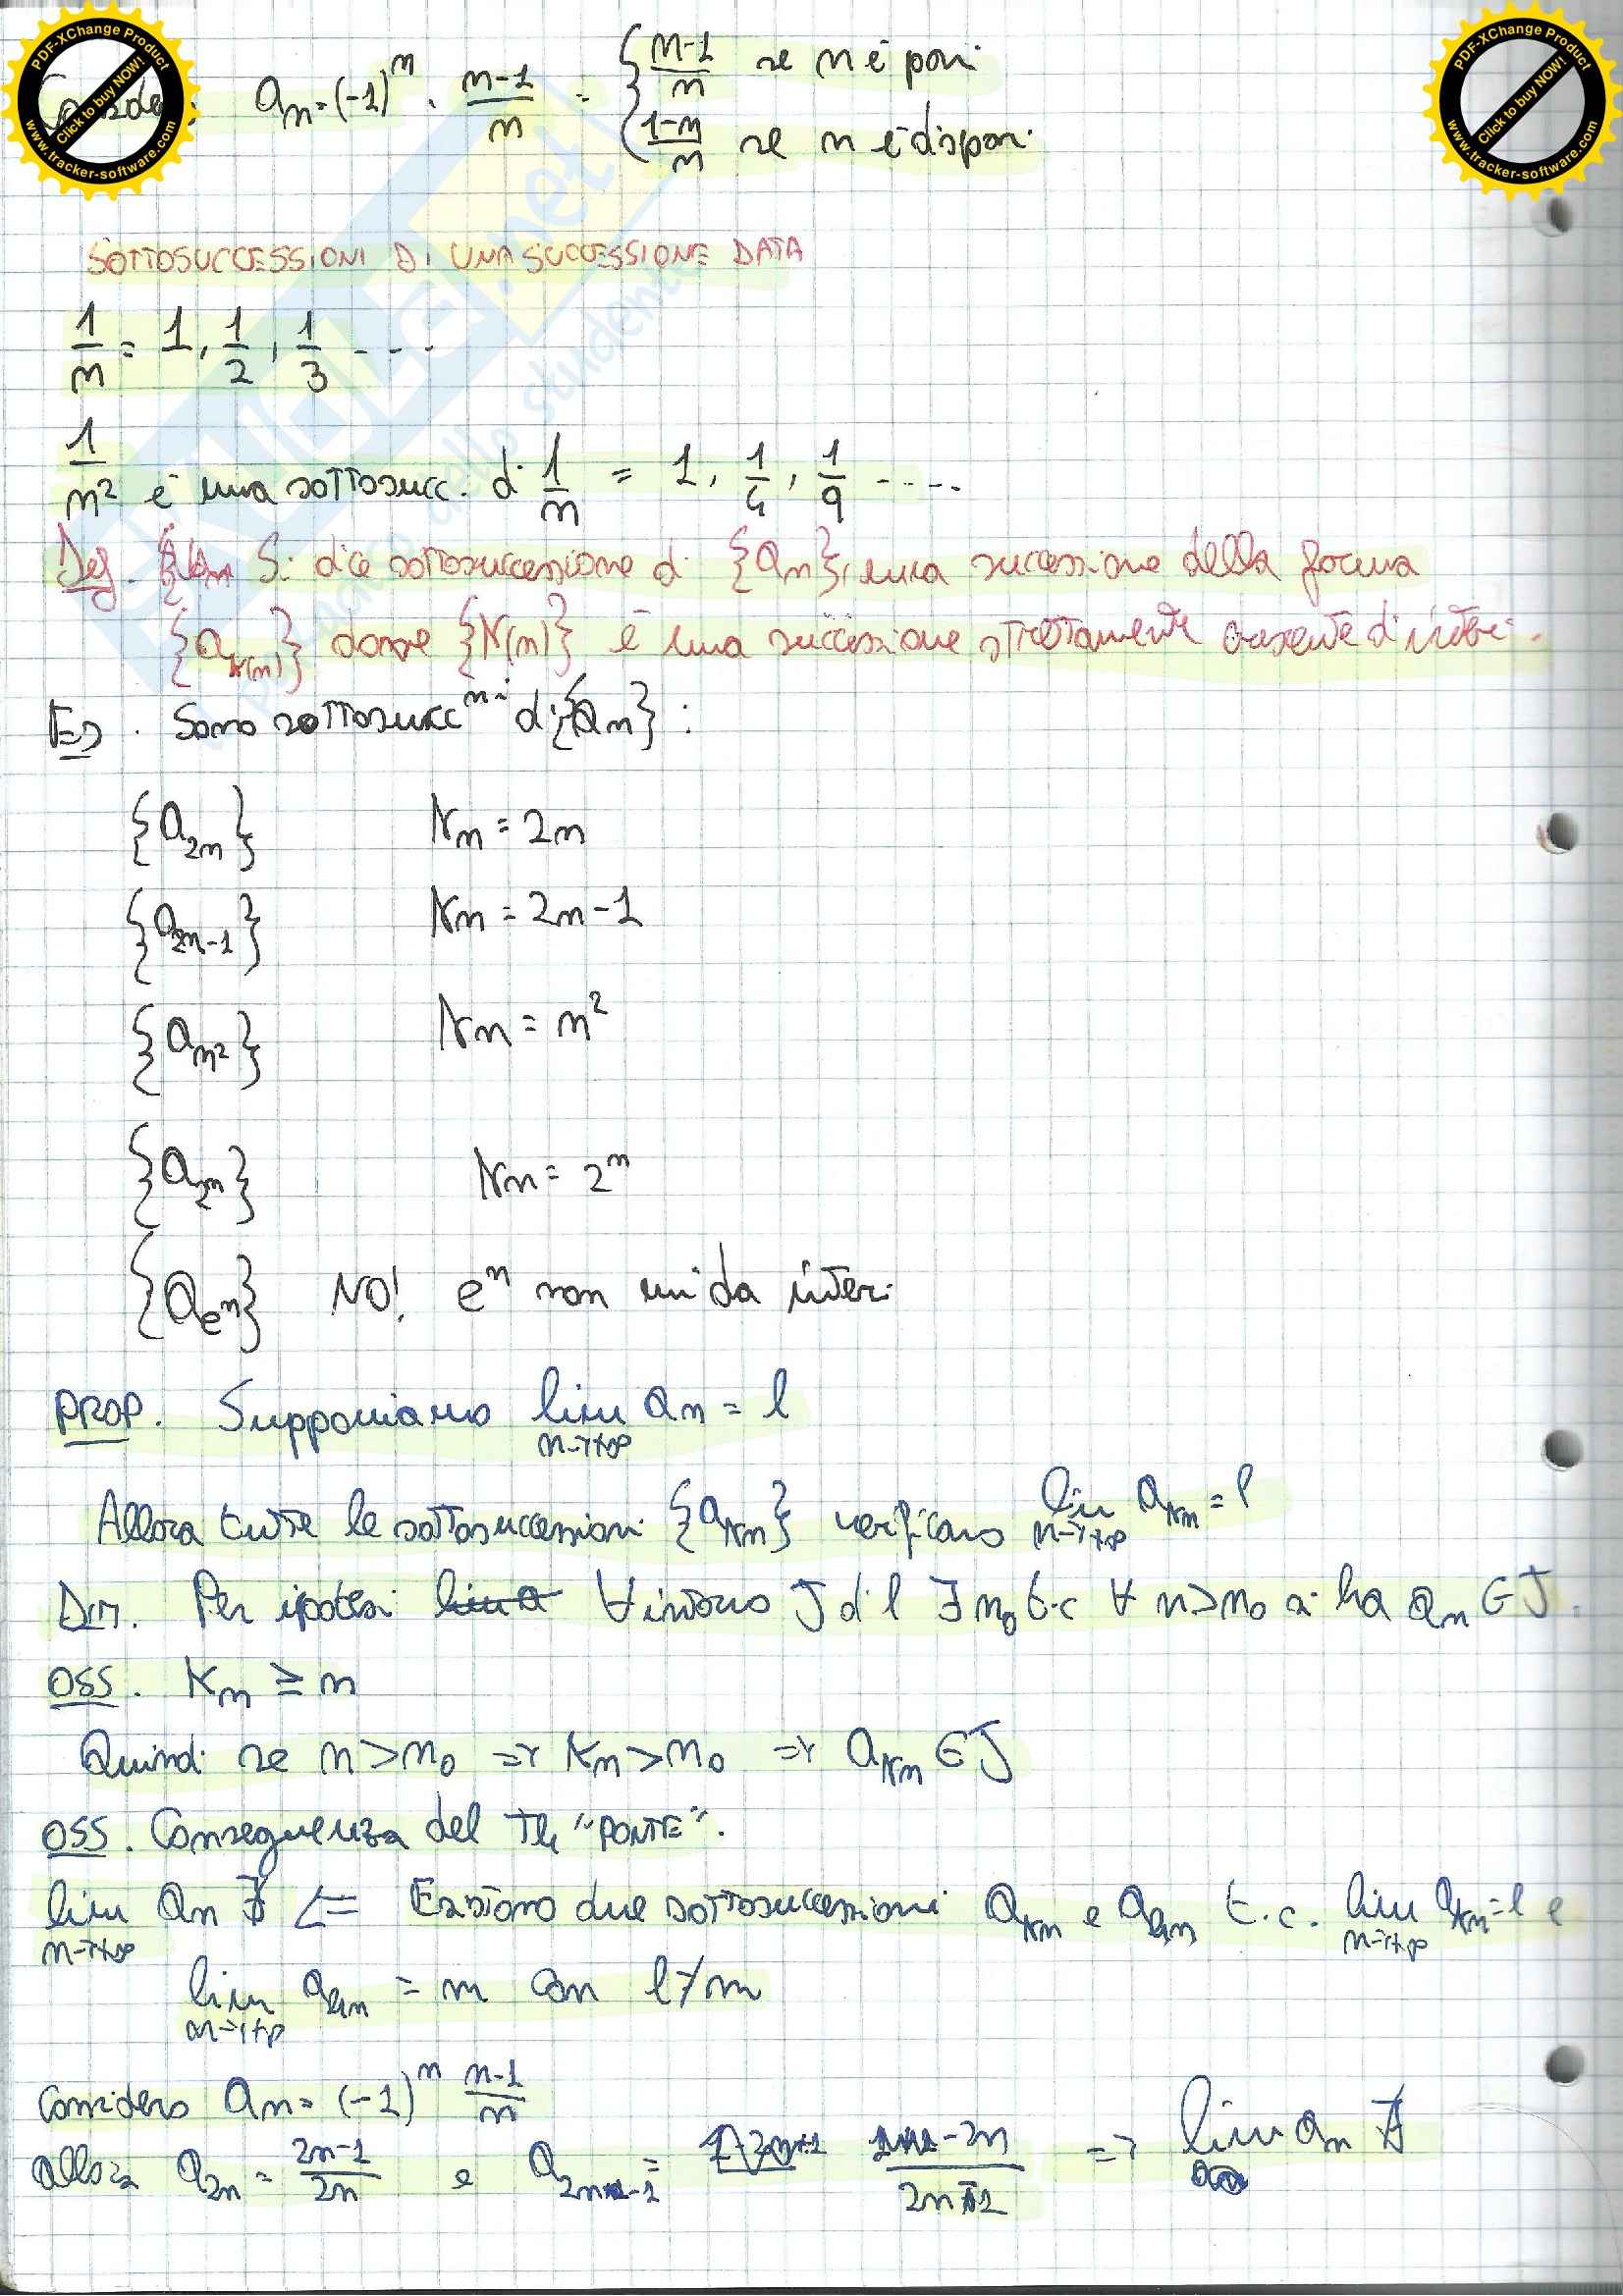 PDF-XChange Product
Click to buy NOW!
www.tracker-software.com
PDF-XChange Product
Click to buy NOW!
www.tracker-software.com
an = (-1)^n · n-1/n = { n-1/n se n è pari
1-n/n se n è dispari
SOTTOSUCCESSIONI DI UNA SUCCESSIONE DATA
1/n = 1, 1/2, 1/3 ....
1/n² è una sottosucc. di 1/n = 1, 1/4, 1/9 .....
Def. Si dice sottosuccessione di {an}, una successione della forma
{a_K(n)} dove {K(n)} è una successione strettamente crescente di interi.
Es. Sono sottosucc^ni di {an}:
{a_2n} Kn = 2n
{a_2n-1} Kn = 2n-1
{a_n²} Kn = n²
{a_2^n} Kn = 2^n
{a_e^n} NO! e^n non mi dà interi
PROP. Supponiamo lim n→+∞ an = l
Allora tutte le sottosuccessioni {a_Kn} verificano lim n→+∞ a_Kn = l
Dim. Per ipotesi ∀ intorno J di l ∃ n0 t.c ∀ n>n0 si ha an ∈ J.
OSS. Kn ≥ n
Quindi se n>n0 => Kn>n0 => a_Kn ∈ J
OSS. Conseguenza del Th "PONTE".
lim n→+∞ an ∄ <= Esistono due sottosuccessioni a_Kn e a_hn t.c. lim n→+∞ a_Kn = l e
lim n→+∞ a_hn = m con l≠m
Considero an = (-1)^n n-1/n
allora a_2n = 2n-1/2n e a_2n-1 = => lim an ∄